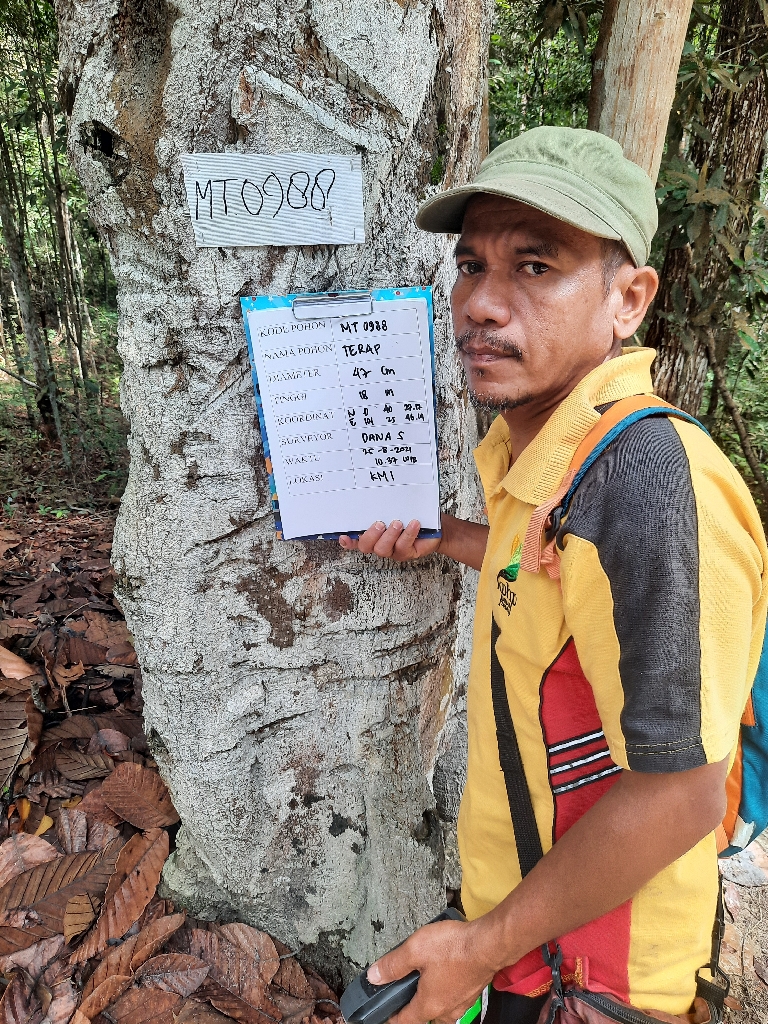 MT0988
KODE POHON MT 0988
NAMA POHON TERAP
DIAMETER 47 Cm
TINGGI 18 m
KOORDINAT N 0 40
E 101 25 46.14
SURVEYOR DANA S
WAKTU 25-8-2021
10.37 WIB
LOKASI KM 1